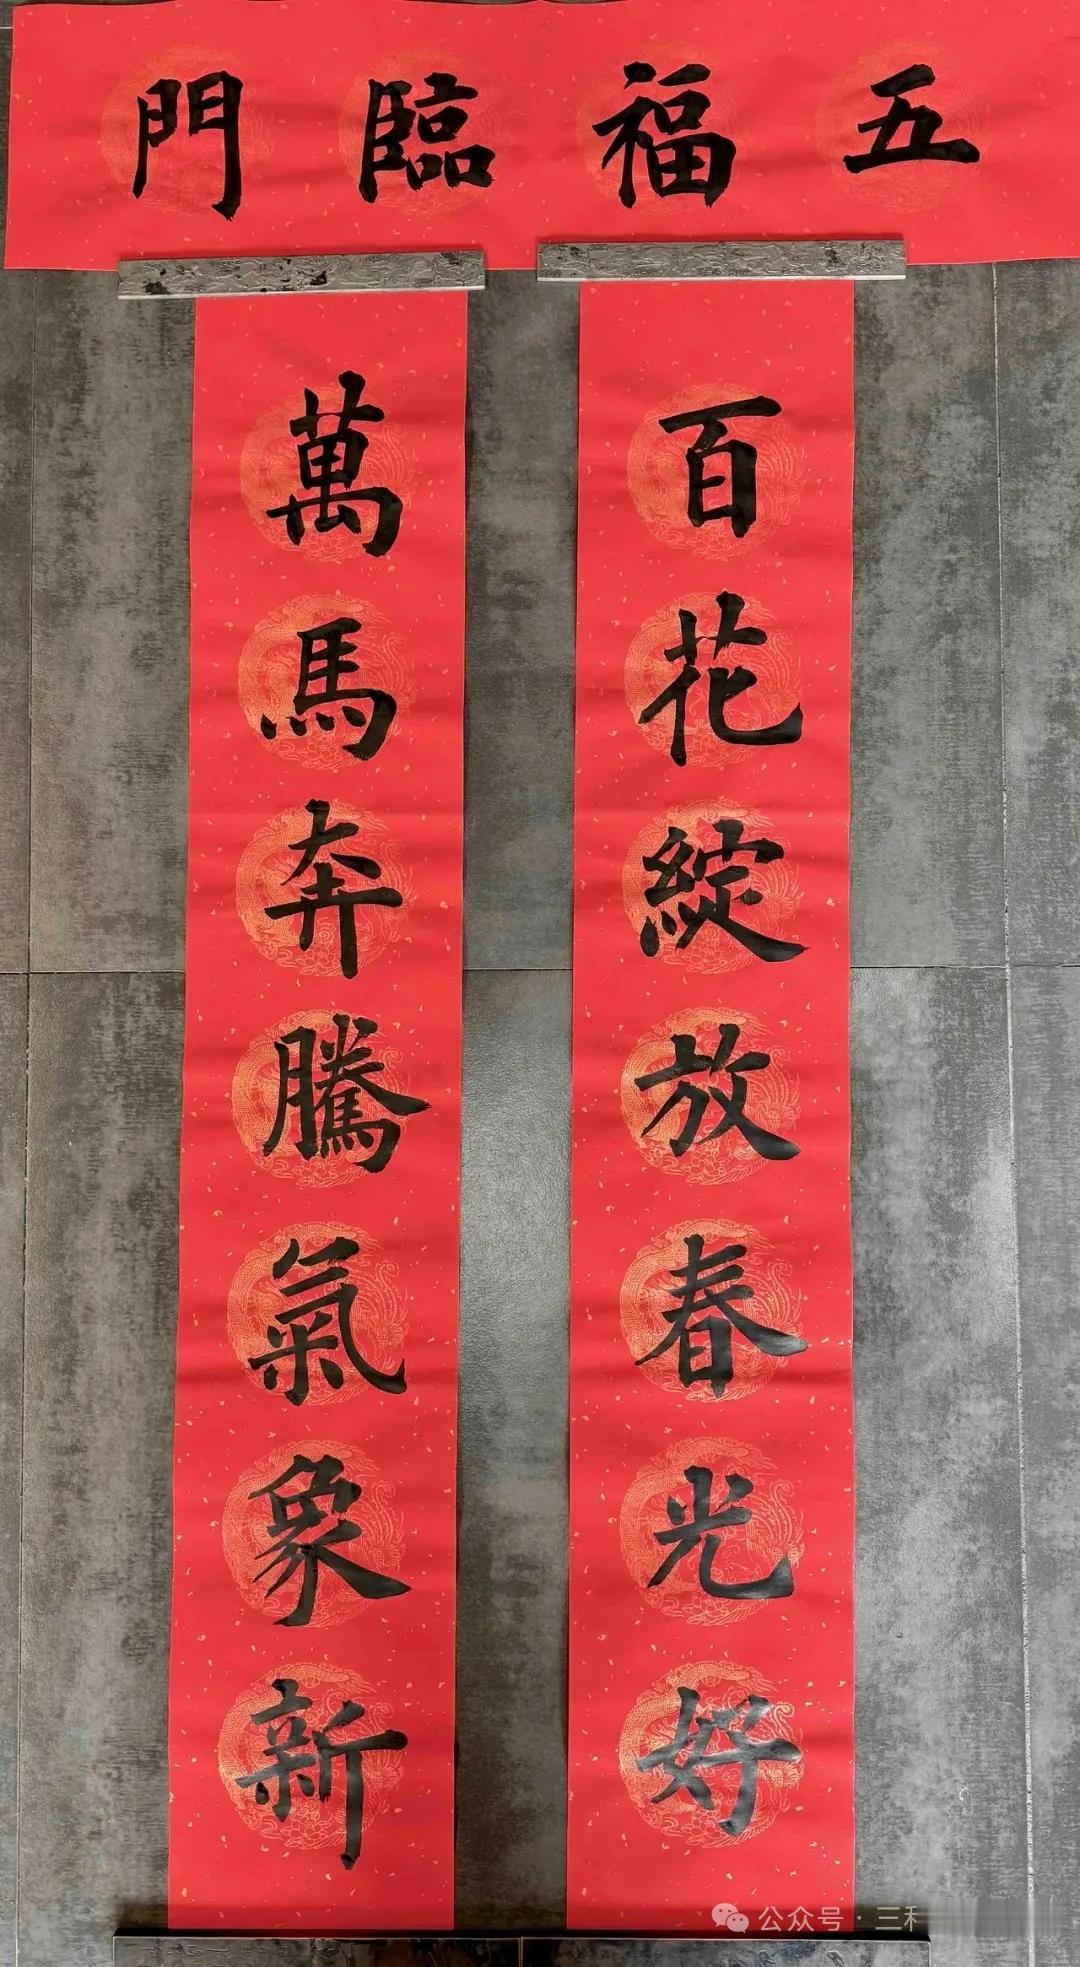 五福臨門
百花綻放春光好
萬馬奔騰氣象新
公众号·三和